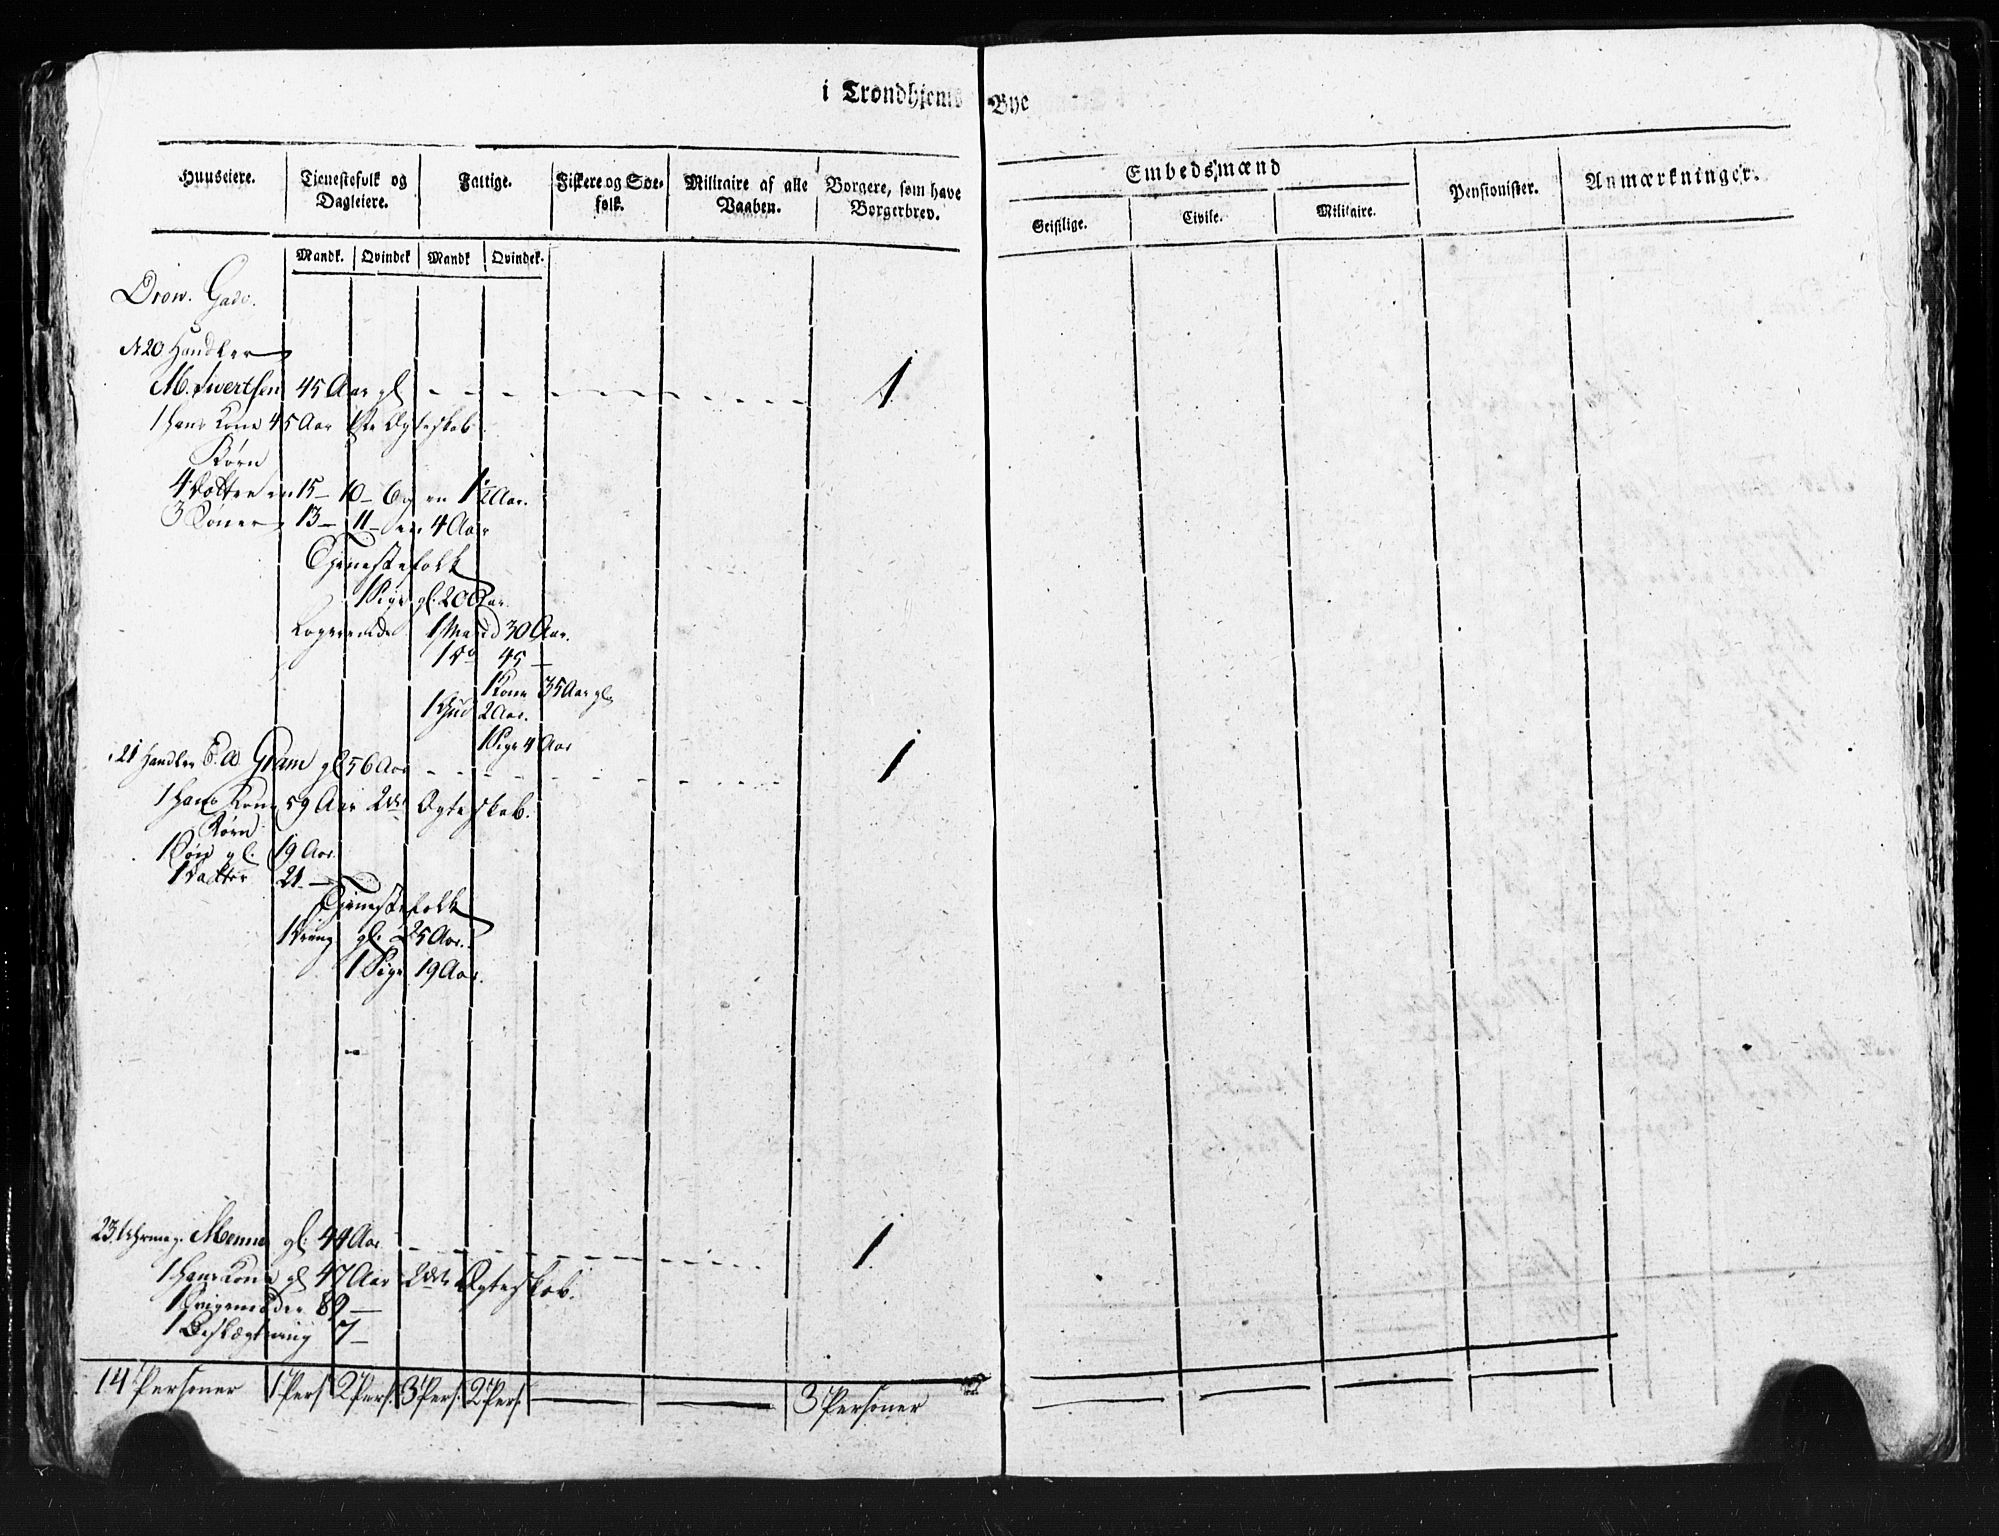 i Trondhjems Bye
Huuseiere. Tienestefolk og Dagleiere. Fattige. Fiskere og Søefolk. Militaire af alle Vaaben. Borgere, som have Borgerbrev. Embedsmænd Pensionister. Anmærkninger.
Geistlige. Civile. Militaire.
Mandk. Qvindek Mandk Qvindek.
Dron. Gade.
N 20 Handler
M. Ivertsen 45 Aar gl 1
1 Hans Kone 45 Aar 1ste Ægteskab
Børn
4 Døttre en 15 - 10 - 6 og en 1½ Aar.
3 Sønner 13 - 11 - en 4 Aar
Tjenestefolk
1 Pige gl. 20 Aar.
Logerende 1 Mand 30 Aar.
1 do 45 -
1 Kone 35 Aar gl
2 Aar.
1 Pige 4 Aar
21 Handler E. A. Gram gl 56 Aar 1
1 Hans Kone 59 Aar 2det Ægteskab.
Børn
1 Søn gl. 19 Aar.
1 Datter 21 -
Tjenestefolk
1 Dreng gl. 25 Aar.
1 Pige 19 Aar.
23. Uhrmag. Menne gl. 44 Aar 1
1 Hans Kone gl 47 Aar 2det Ægteskab.
1 Svigermoder 89 -
1 Beslægtning 7 -
14 Personer 1 Pers 2 Pers. 3 Pers. 2 Pers. 3 Personer